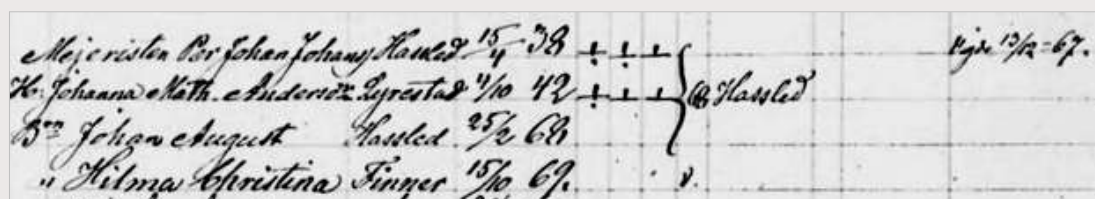 Mejeristen Per Johan Johans Hassled 15/4 38 Vigde 13/12-67.
H. Johanna Math. Anderson Lyrestad 4/10 42 Hassled
Bn Johan August Hassled 25/2 68
" Hilma Christina Finner 15/10 69.